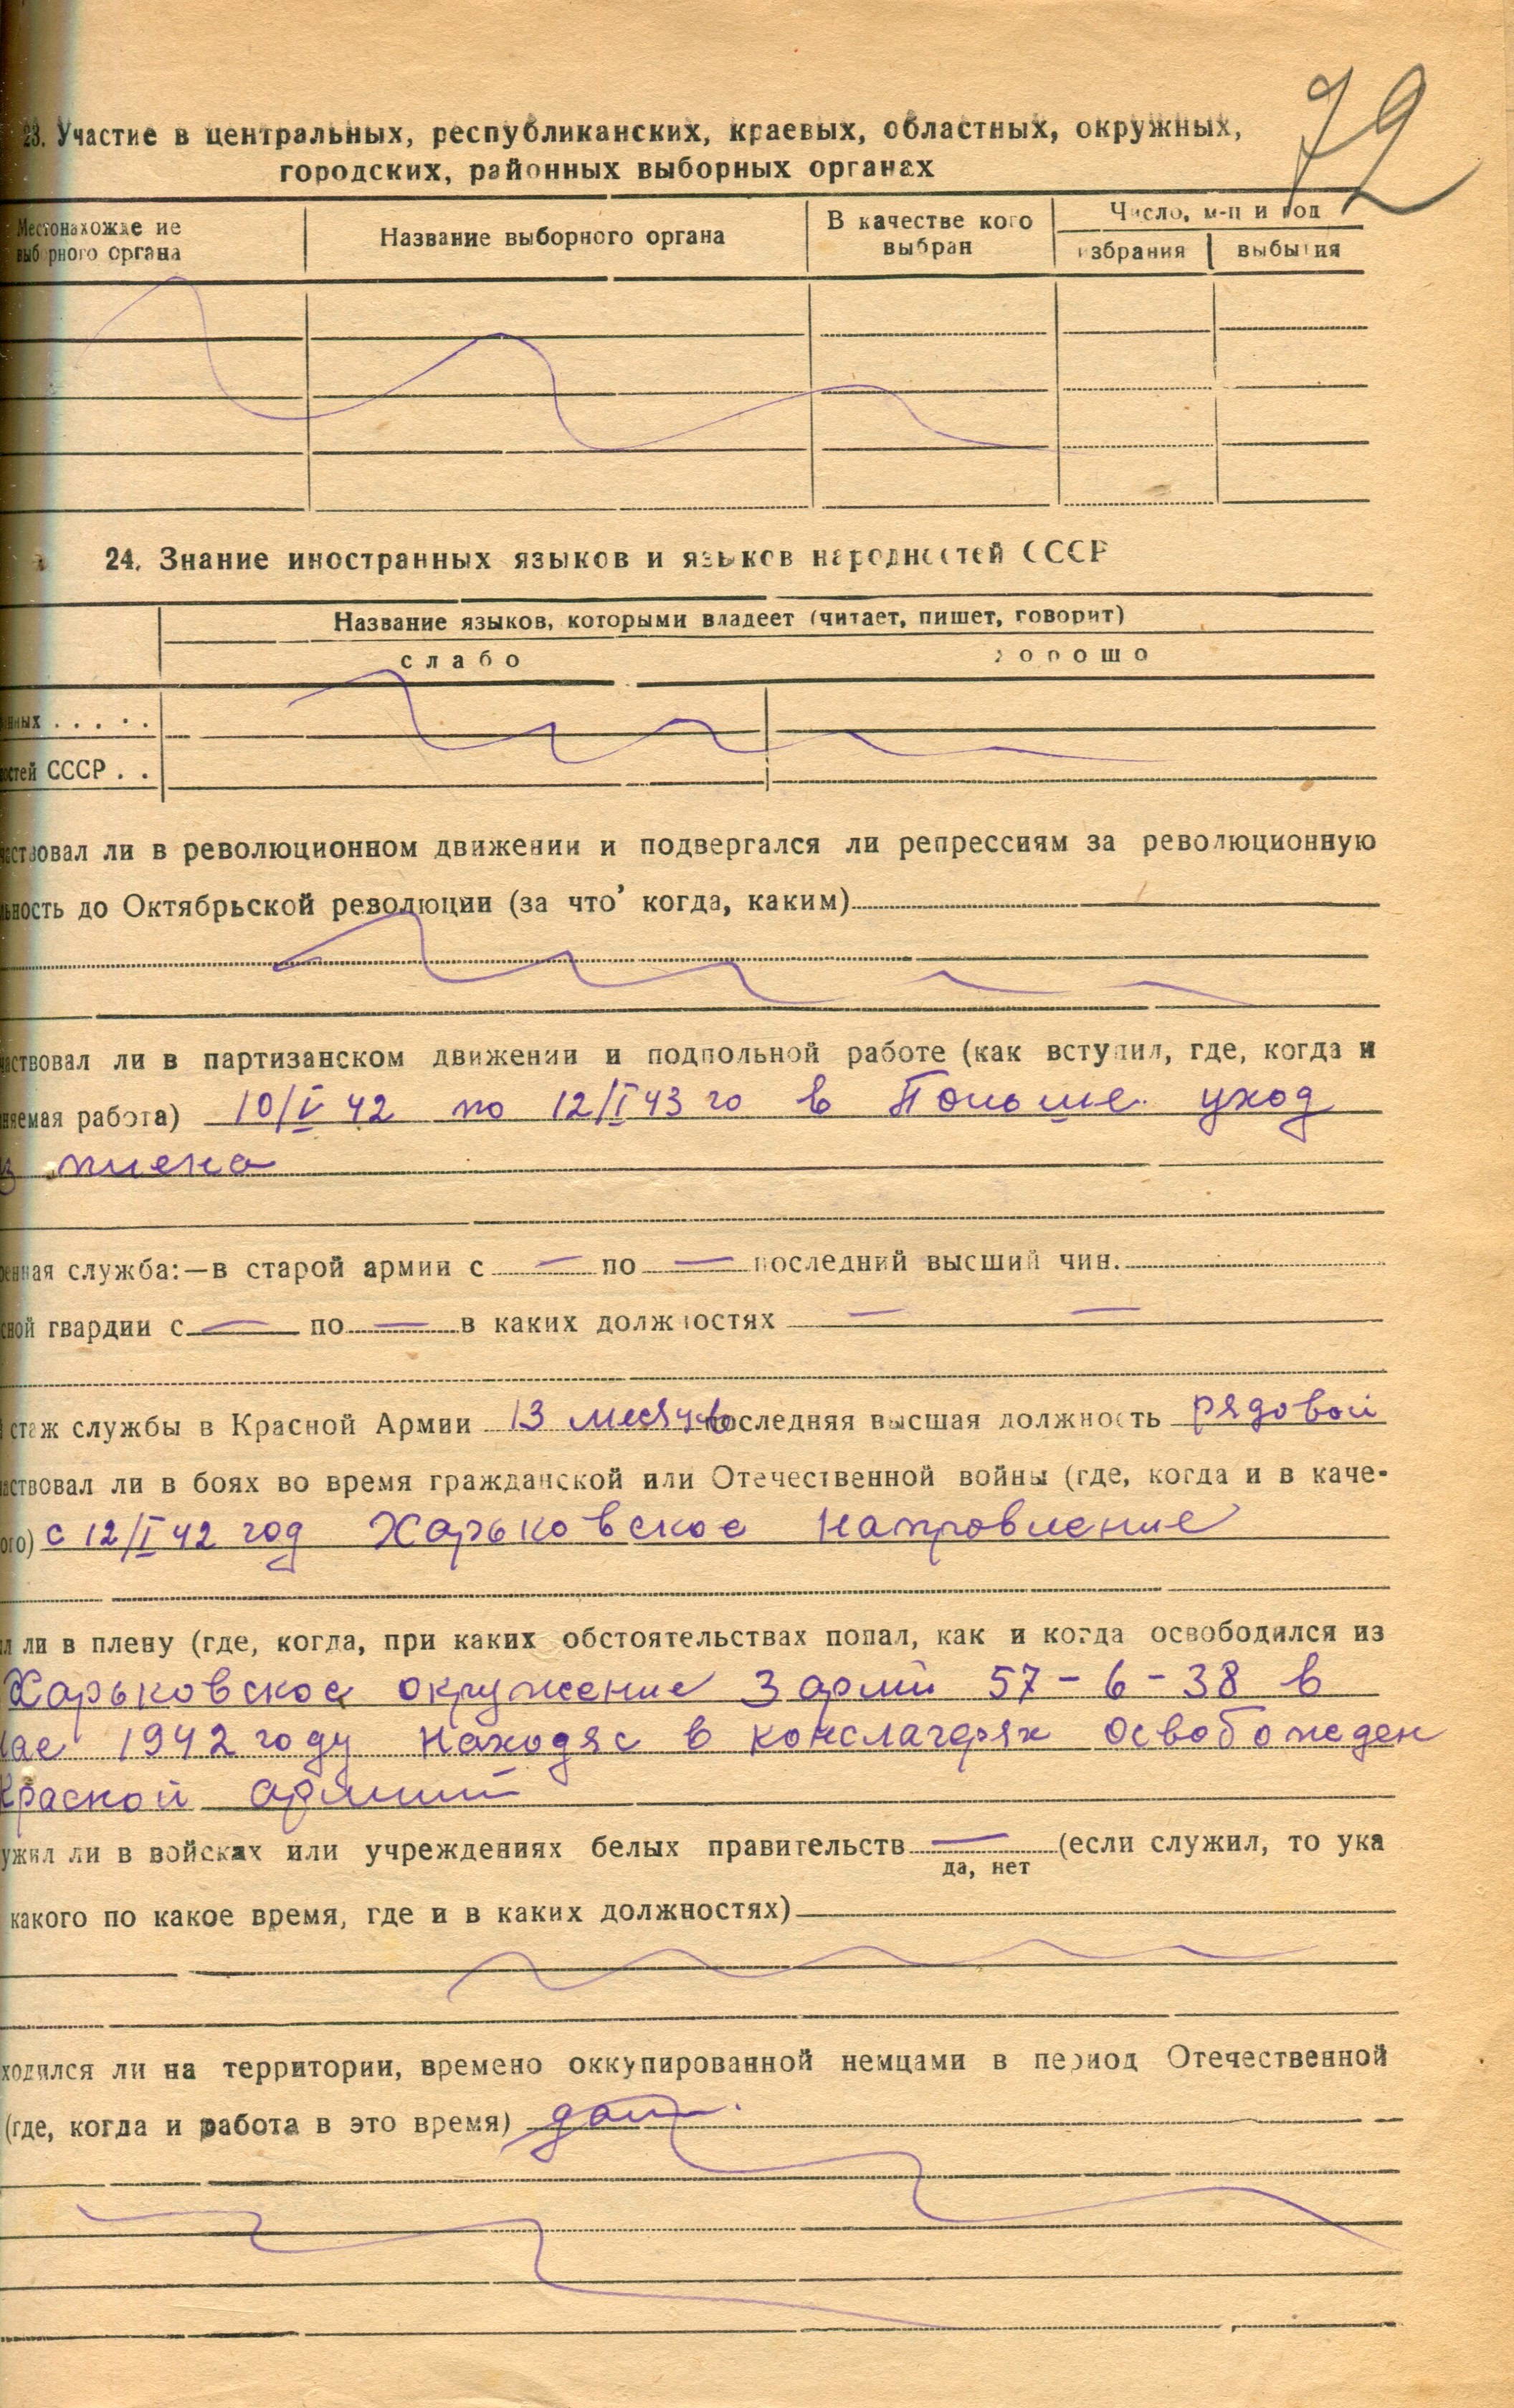 72
23. Участие в центральных, республиканских, краевых, областных, окружных,
городских, районных выборных органах
Местонахожде ие
выборного органа
Название выборного органа
В качестве кого
выбран
Число, м-ц и год
избрания
выбытия
24. Знание иностранных языков и языков народностей СССР
Название языков, которыми владеет (читает, пишет, говорит)
слабо
хорошо
нных . . . . .
остей СССР . .
аствовал ли в революционном движении и подвергался ли репрессиям за революционную
льность до Октябрьской революции (за что, когда, каким)
аствовал ли в партизанском движении и подпольной работе (как вступил, где, когда и
няемая работа) 10/V 42 по 12/I 43 го в Польше уход
из плена
енная служба:—в старой армии с — по — последний высший чин.
сной гвардии с — по — в каких должностях — —
стаж службы в Красной Армии 13 месяцев последняя высшая должность рядовой
аствовал ли в боях во время гражданской или Отечественной войны (где, когда и в каче-
ого) с 12/I 42 год Харьковское направление
л ли в плену (где, когда, при каких обстоятельствах попал, как и когда освободился из
Харьковское окружение 3 армий 57-6-38 в
мае 1942 году находяс в концлагерях освобожден
Красной армий
ужил ли в войсках или учреждениях белых правительств — (если служил, то ука
да, нет
какого по какое время, где и в каких должностях)
ходился ли на территории, времено оккупированной немцами в период Отечественной
(где, когда и работа в это время)